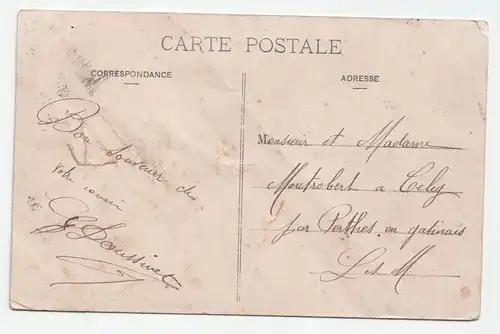 CARTE POSTALE
CORRESPONDANCE
ADRESSE
Bon Souvenir du
votre cousin
Monsieur et Madame
Montrobert a Cely
par Perthes en gatinais
S et M